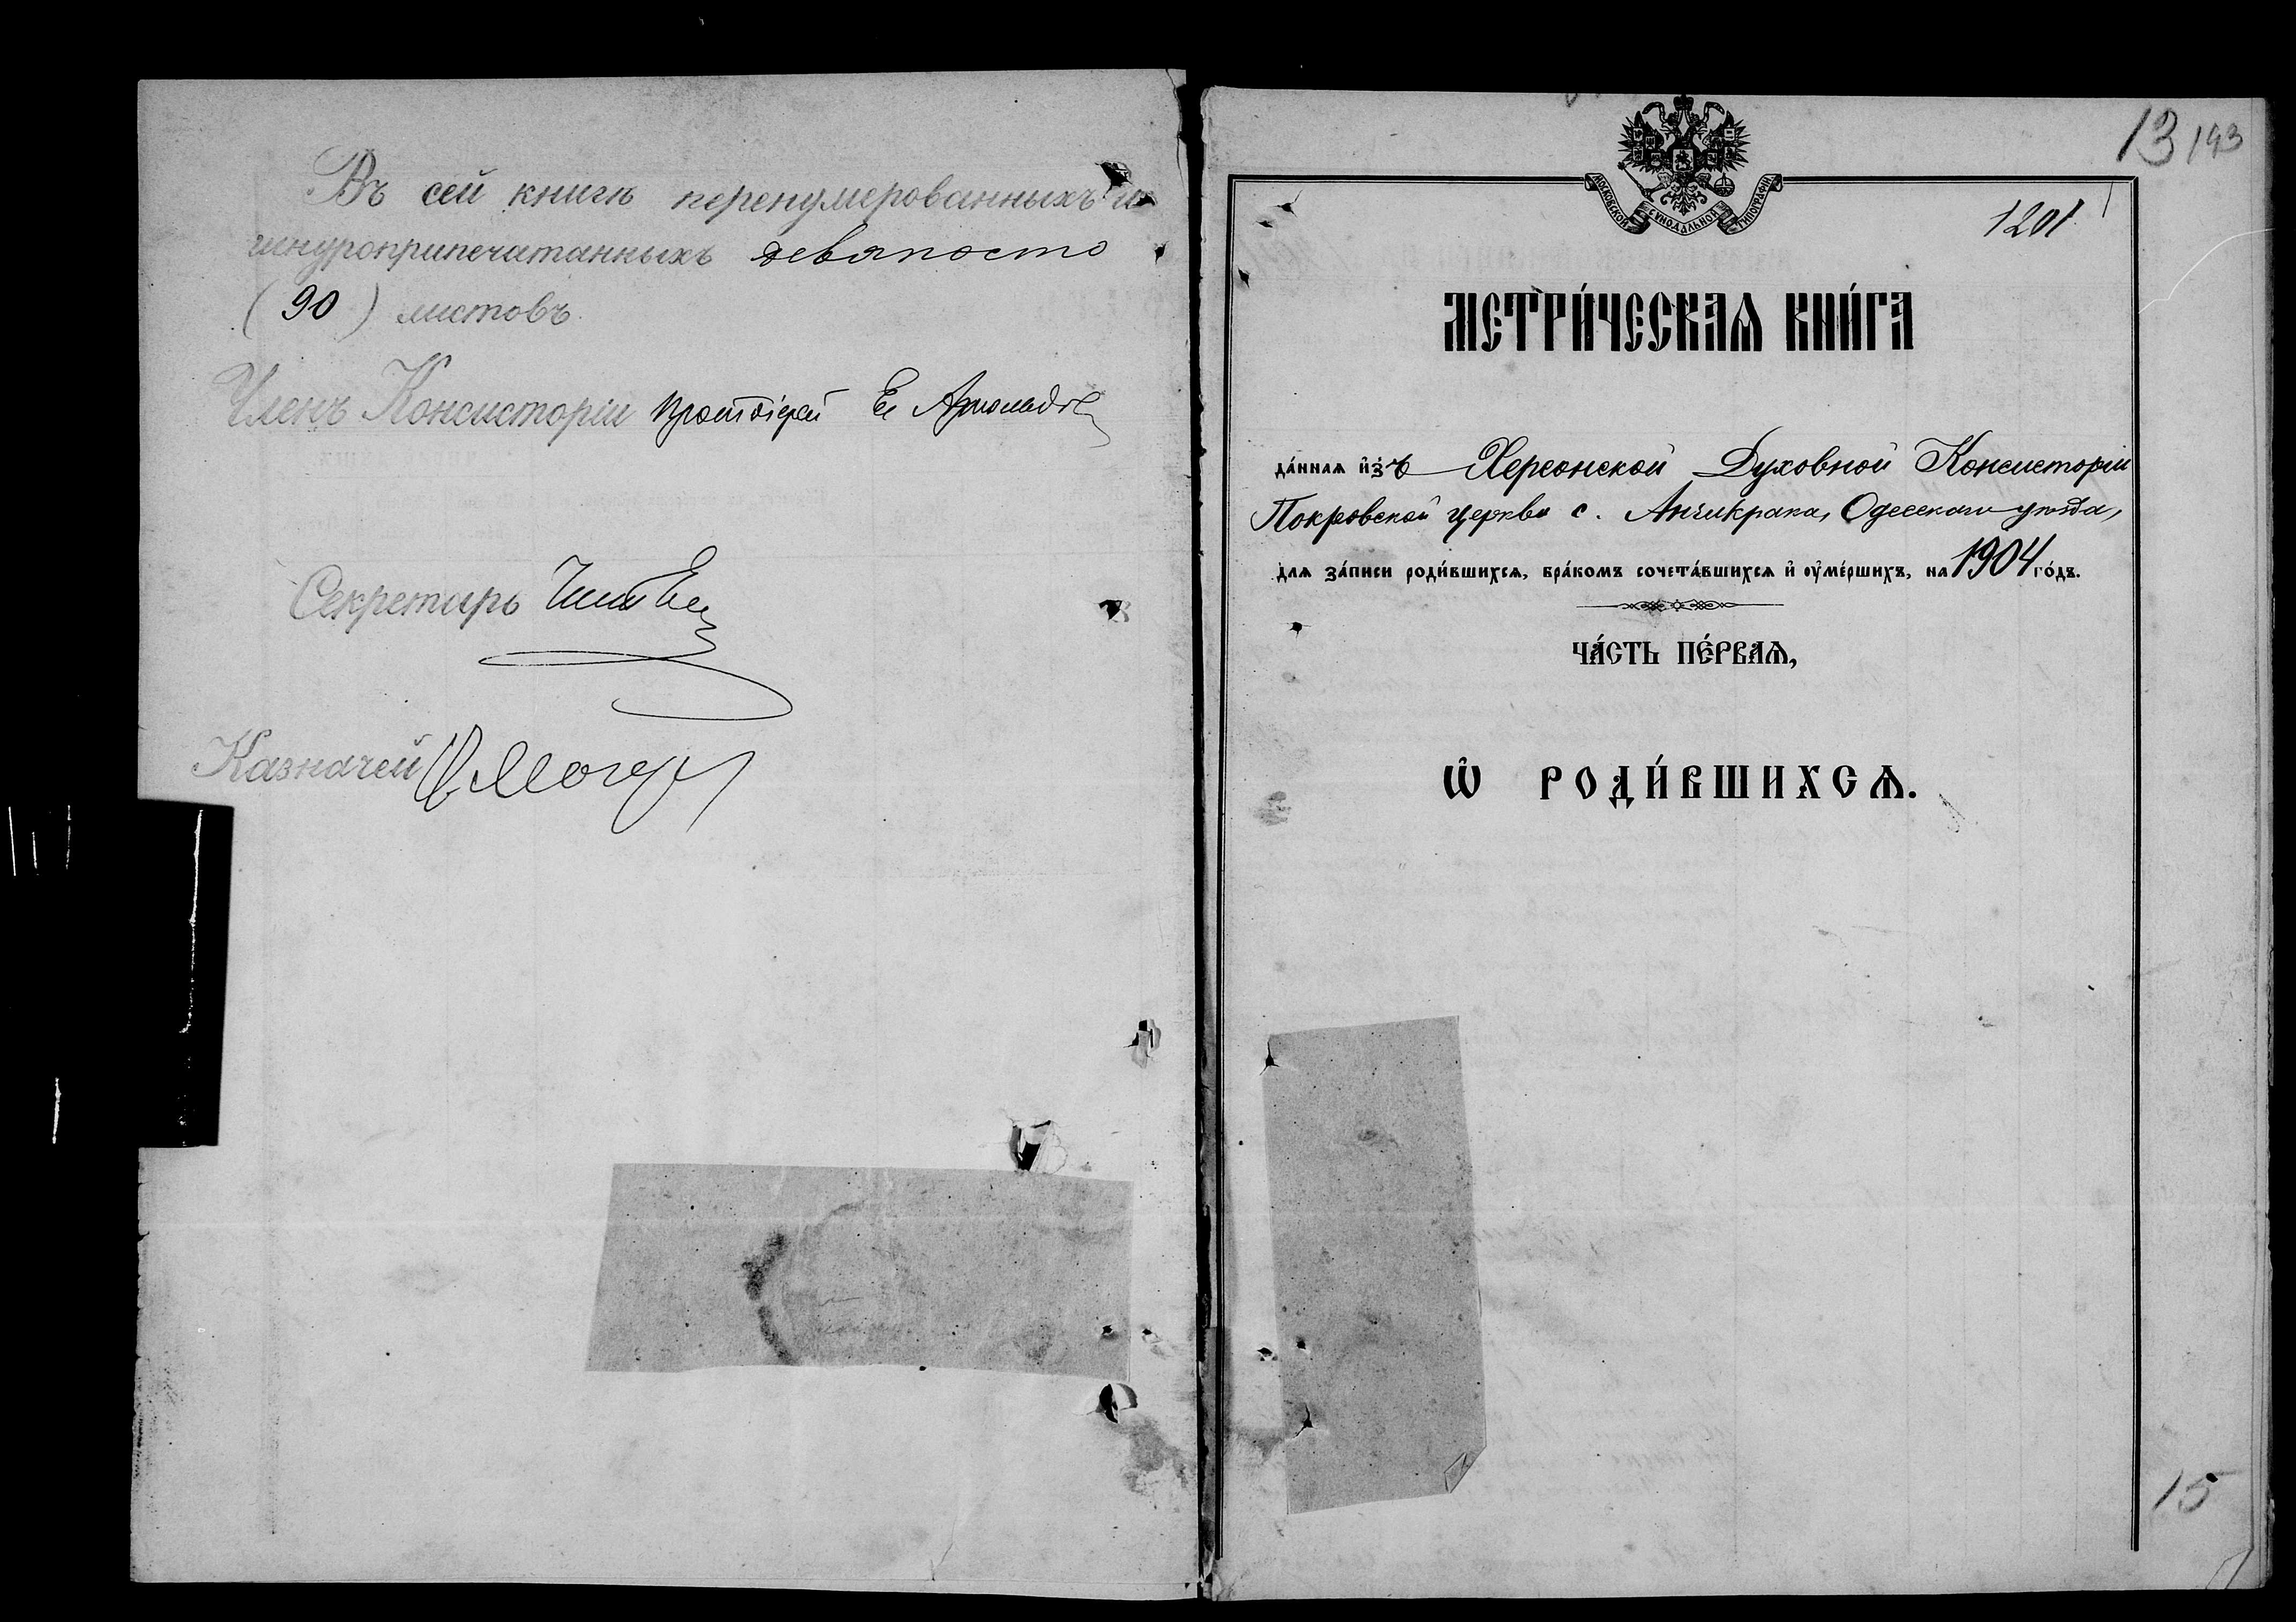 Въ сей книгѣ перенумерованныхъ и
шнуроприпечатанныхъ девяносто
(90) листовъ.
Членъ Консисторіи Протоіерей
Секретарь
Казначей
13 143
МОСКОВСКОЙ СѴНОДАЛЬНОЙ ТИПОГРАФІИ
1
1201
МЕТРИ́ЧЕСКАѦ КНИ́ГА
да́нная и҆зъ Херсонской Духовной Консисторіи
Покровской церкви с. Анчикрака, Одесскаго уѣзда,
для за́писи роди́вшихся, бра́комъ сочета́вшихся и҆ оу҆ме́ршихъ, на 1904 го́дъ.
ЧА́СТЬ ПЕ́РВАѦ,
Ѽ РОДИ́ВШИХСѦ.
15